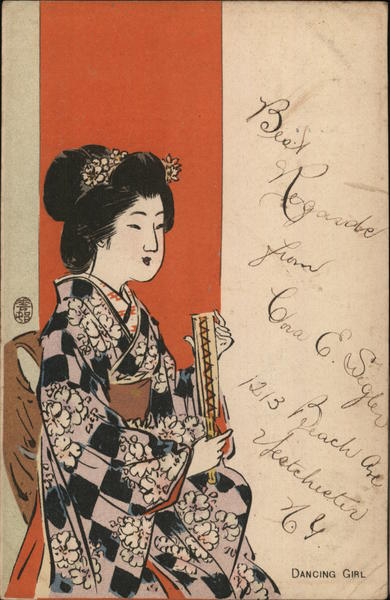 Best
Regards
from
Cora E. Sigler
1213 Beach Ave
Westchester
N Y
DANCING GIRL